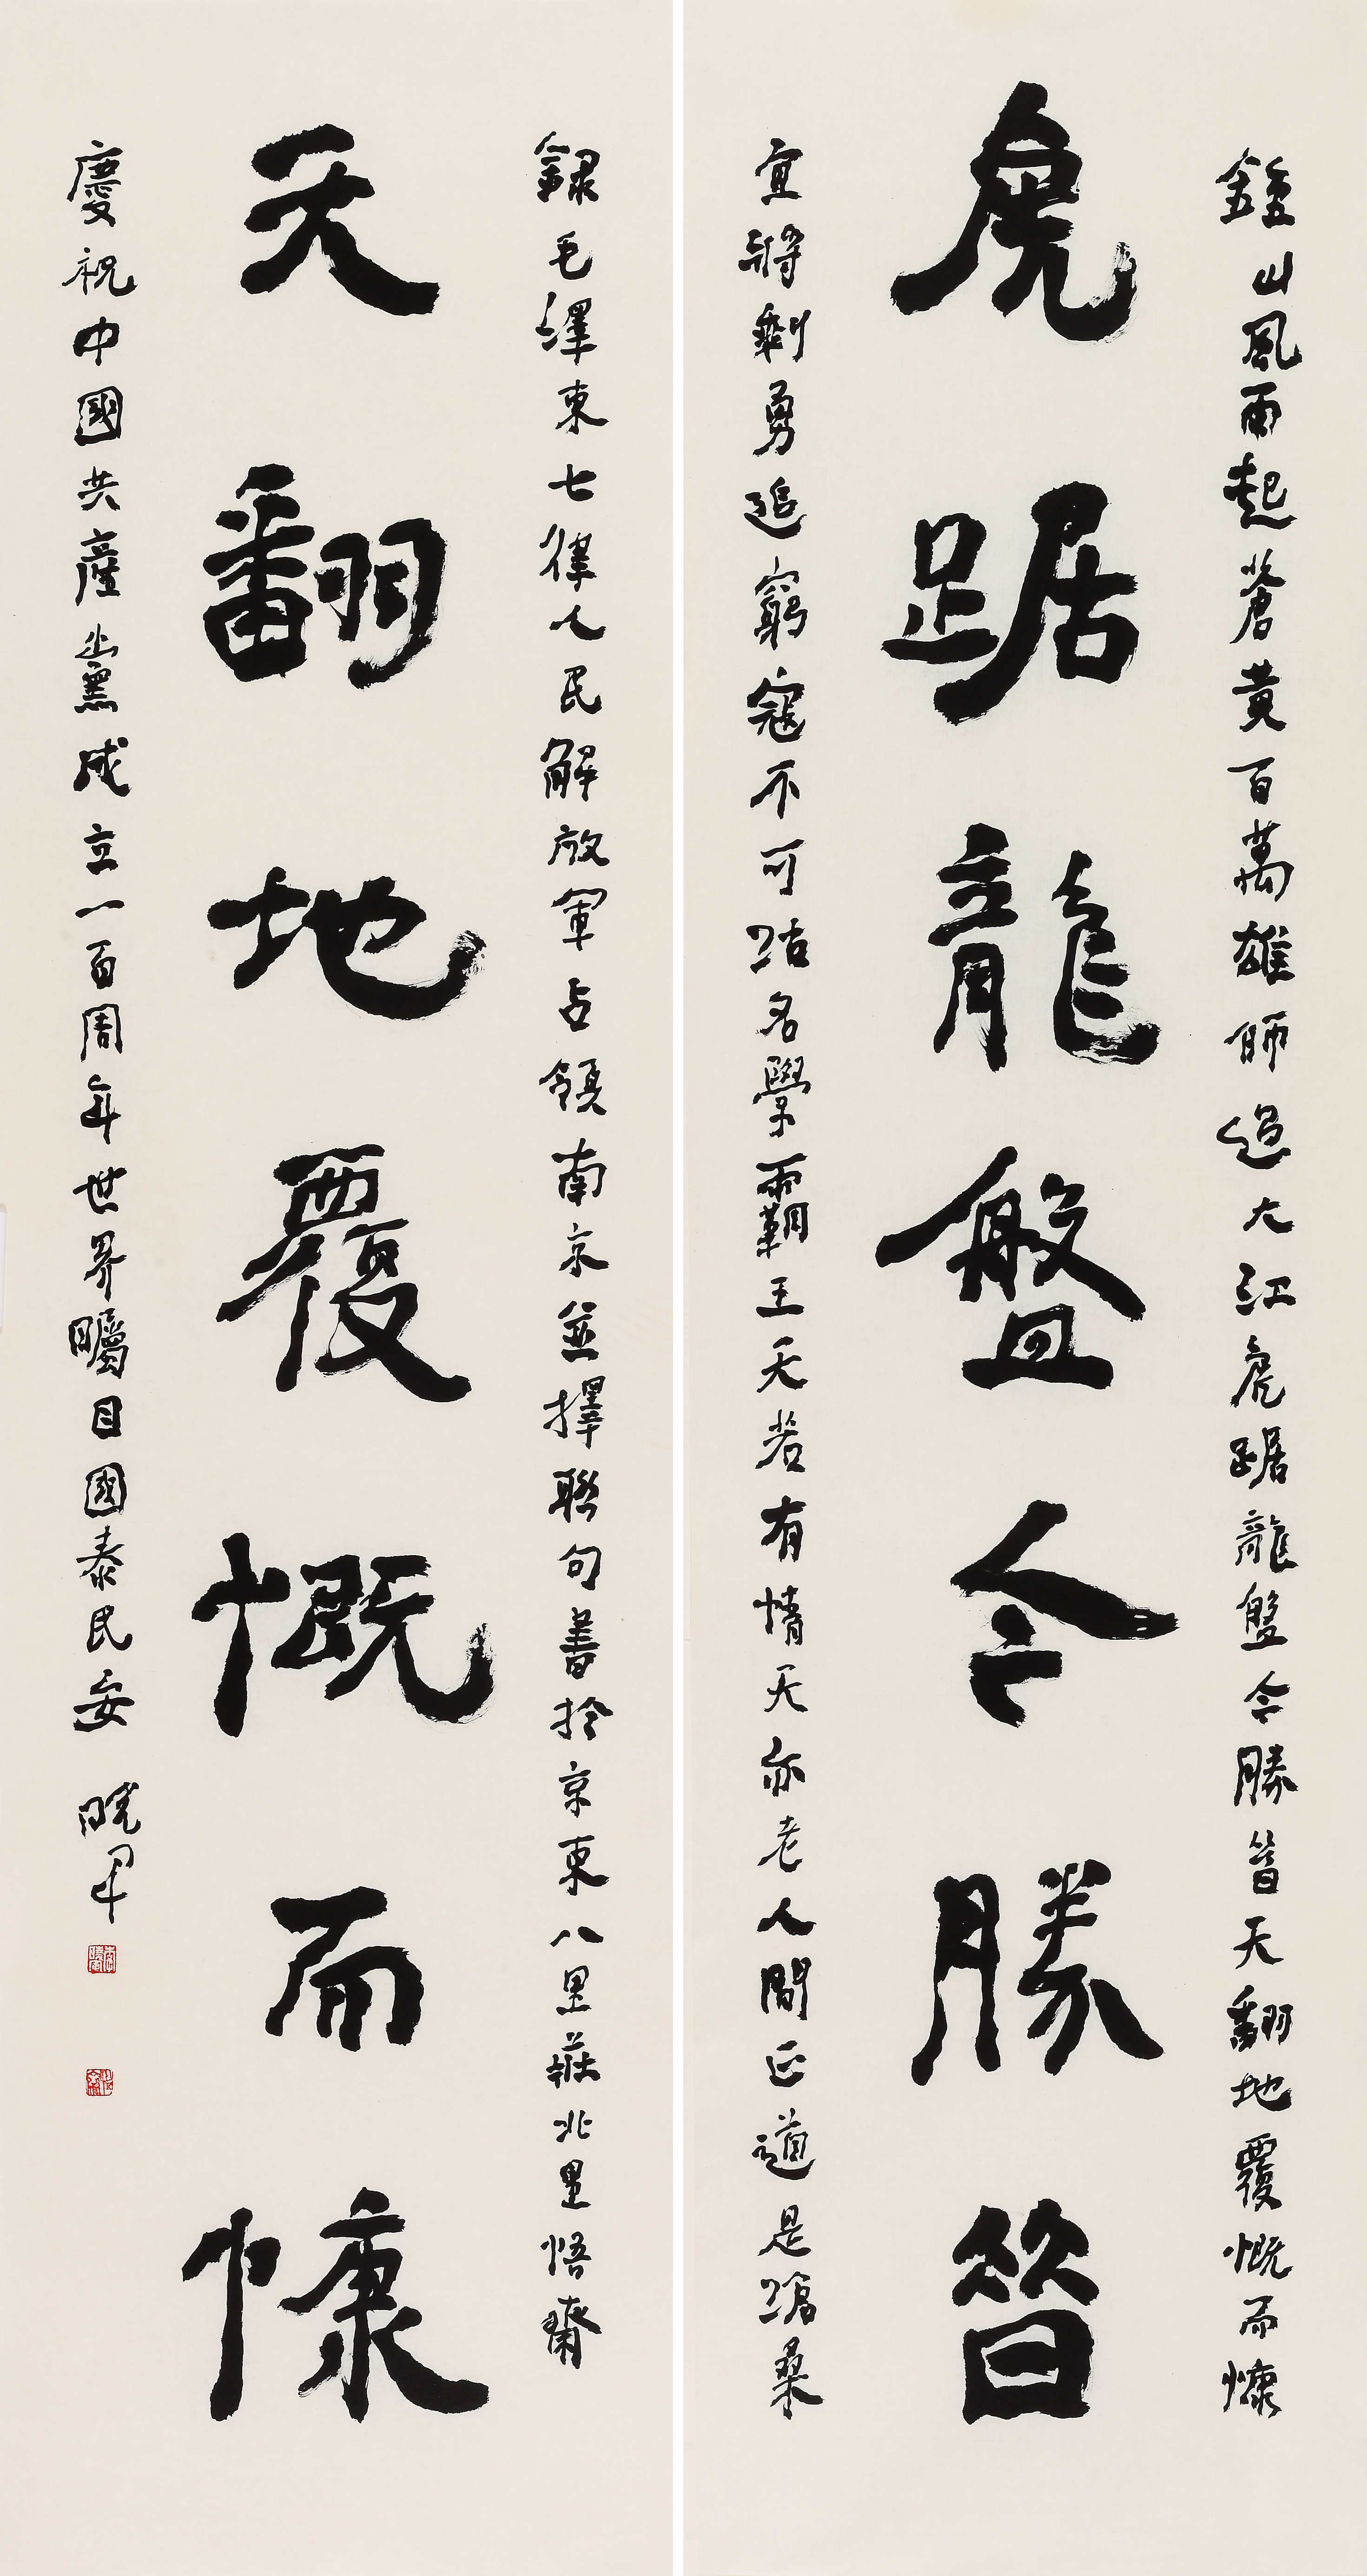 鍾山風雨起蒼黃百萬雄師過大江虎踞龍盤今勝昔天翻地覆慨而慷
虎踞龍盤今勝昔
宜將剩勇追窮寇不可沽名學霸王天若有情天亦老人間正道是滄桑
錄毛澤東七律人民解放軍占領南京並擇聯句書於京東八里莊北里悟齋
天翻地覆慨而慷
慶祝中國共產黨成立一百周年世界矚目國泰民安 曉軍